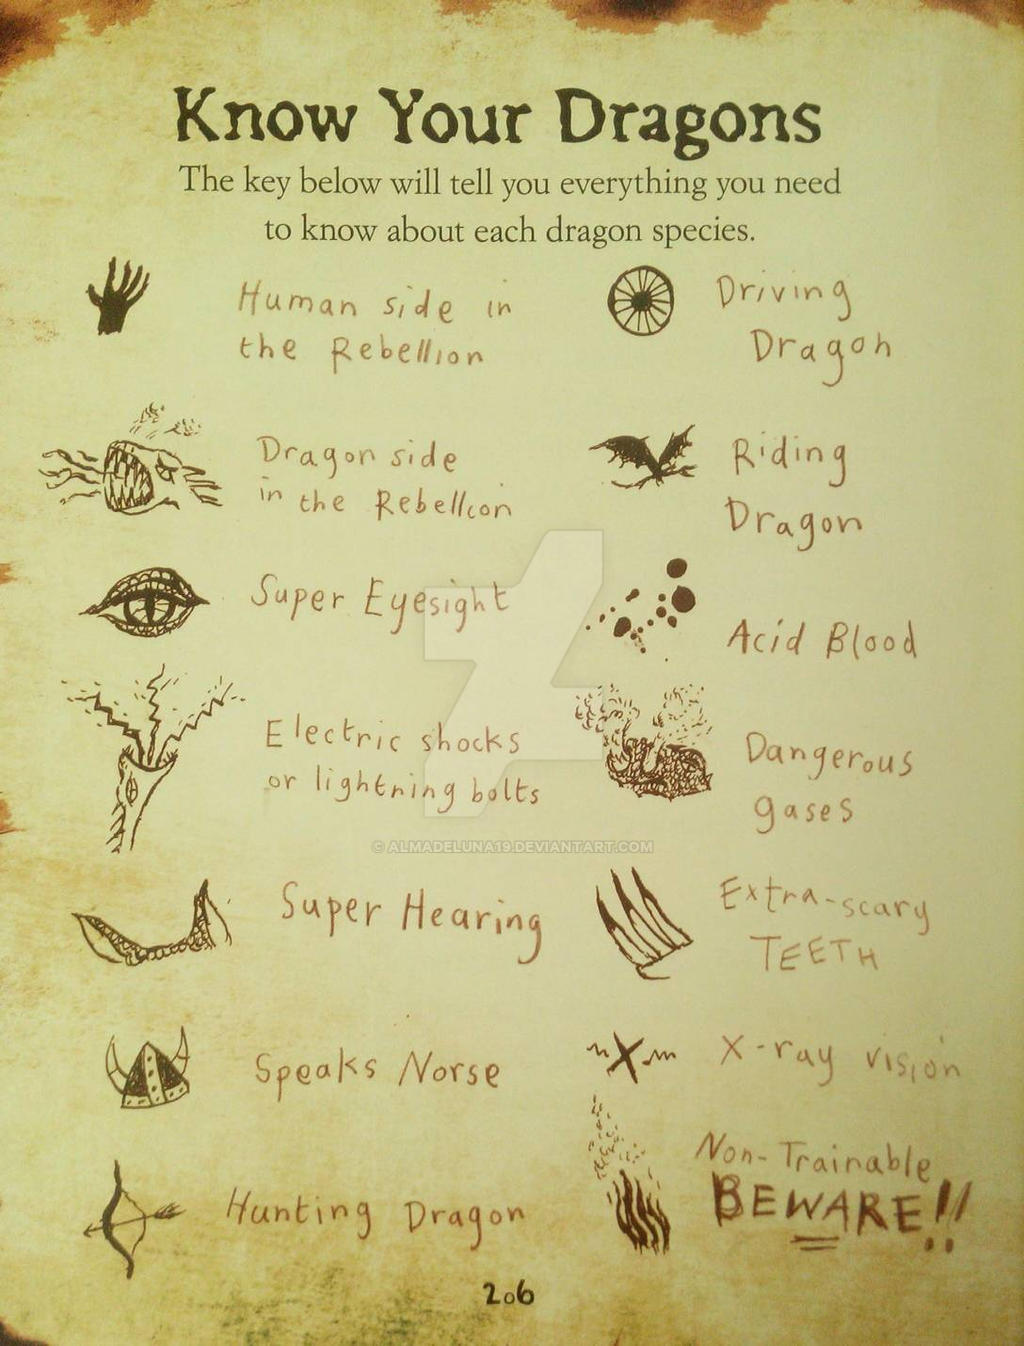 Know Your Dragons
The key below will tell you everything you need
to know about each dragon species.
Human side in
the Rebellion
Dragon side
in the Rebellion
Super Eyesight
Electric shocks
or lightning bolts
Super Hearing
Speaks Norse
Hunting Dragon
Driving
Dragon
Riding
Dragon
Acid Blood
Dangerous
gases
Extra-scary
TEETH
X-ray vision
Non-Trainable
BEWARE!!
© ALMADELUNA19.DEVIANTART.COM
206